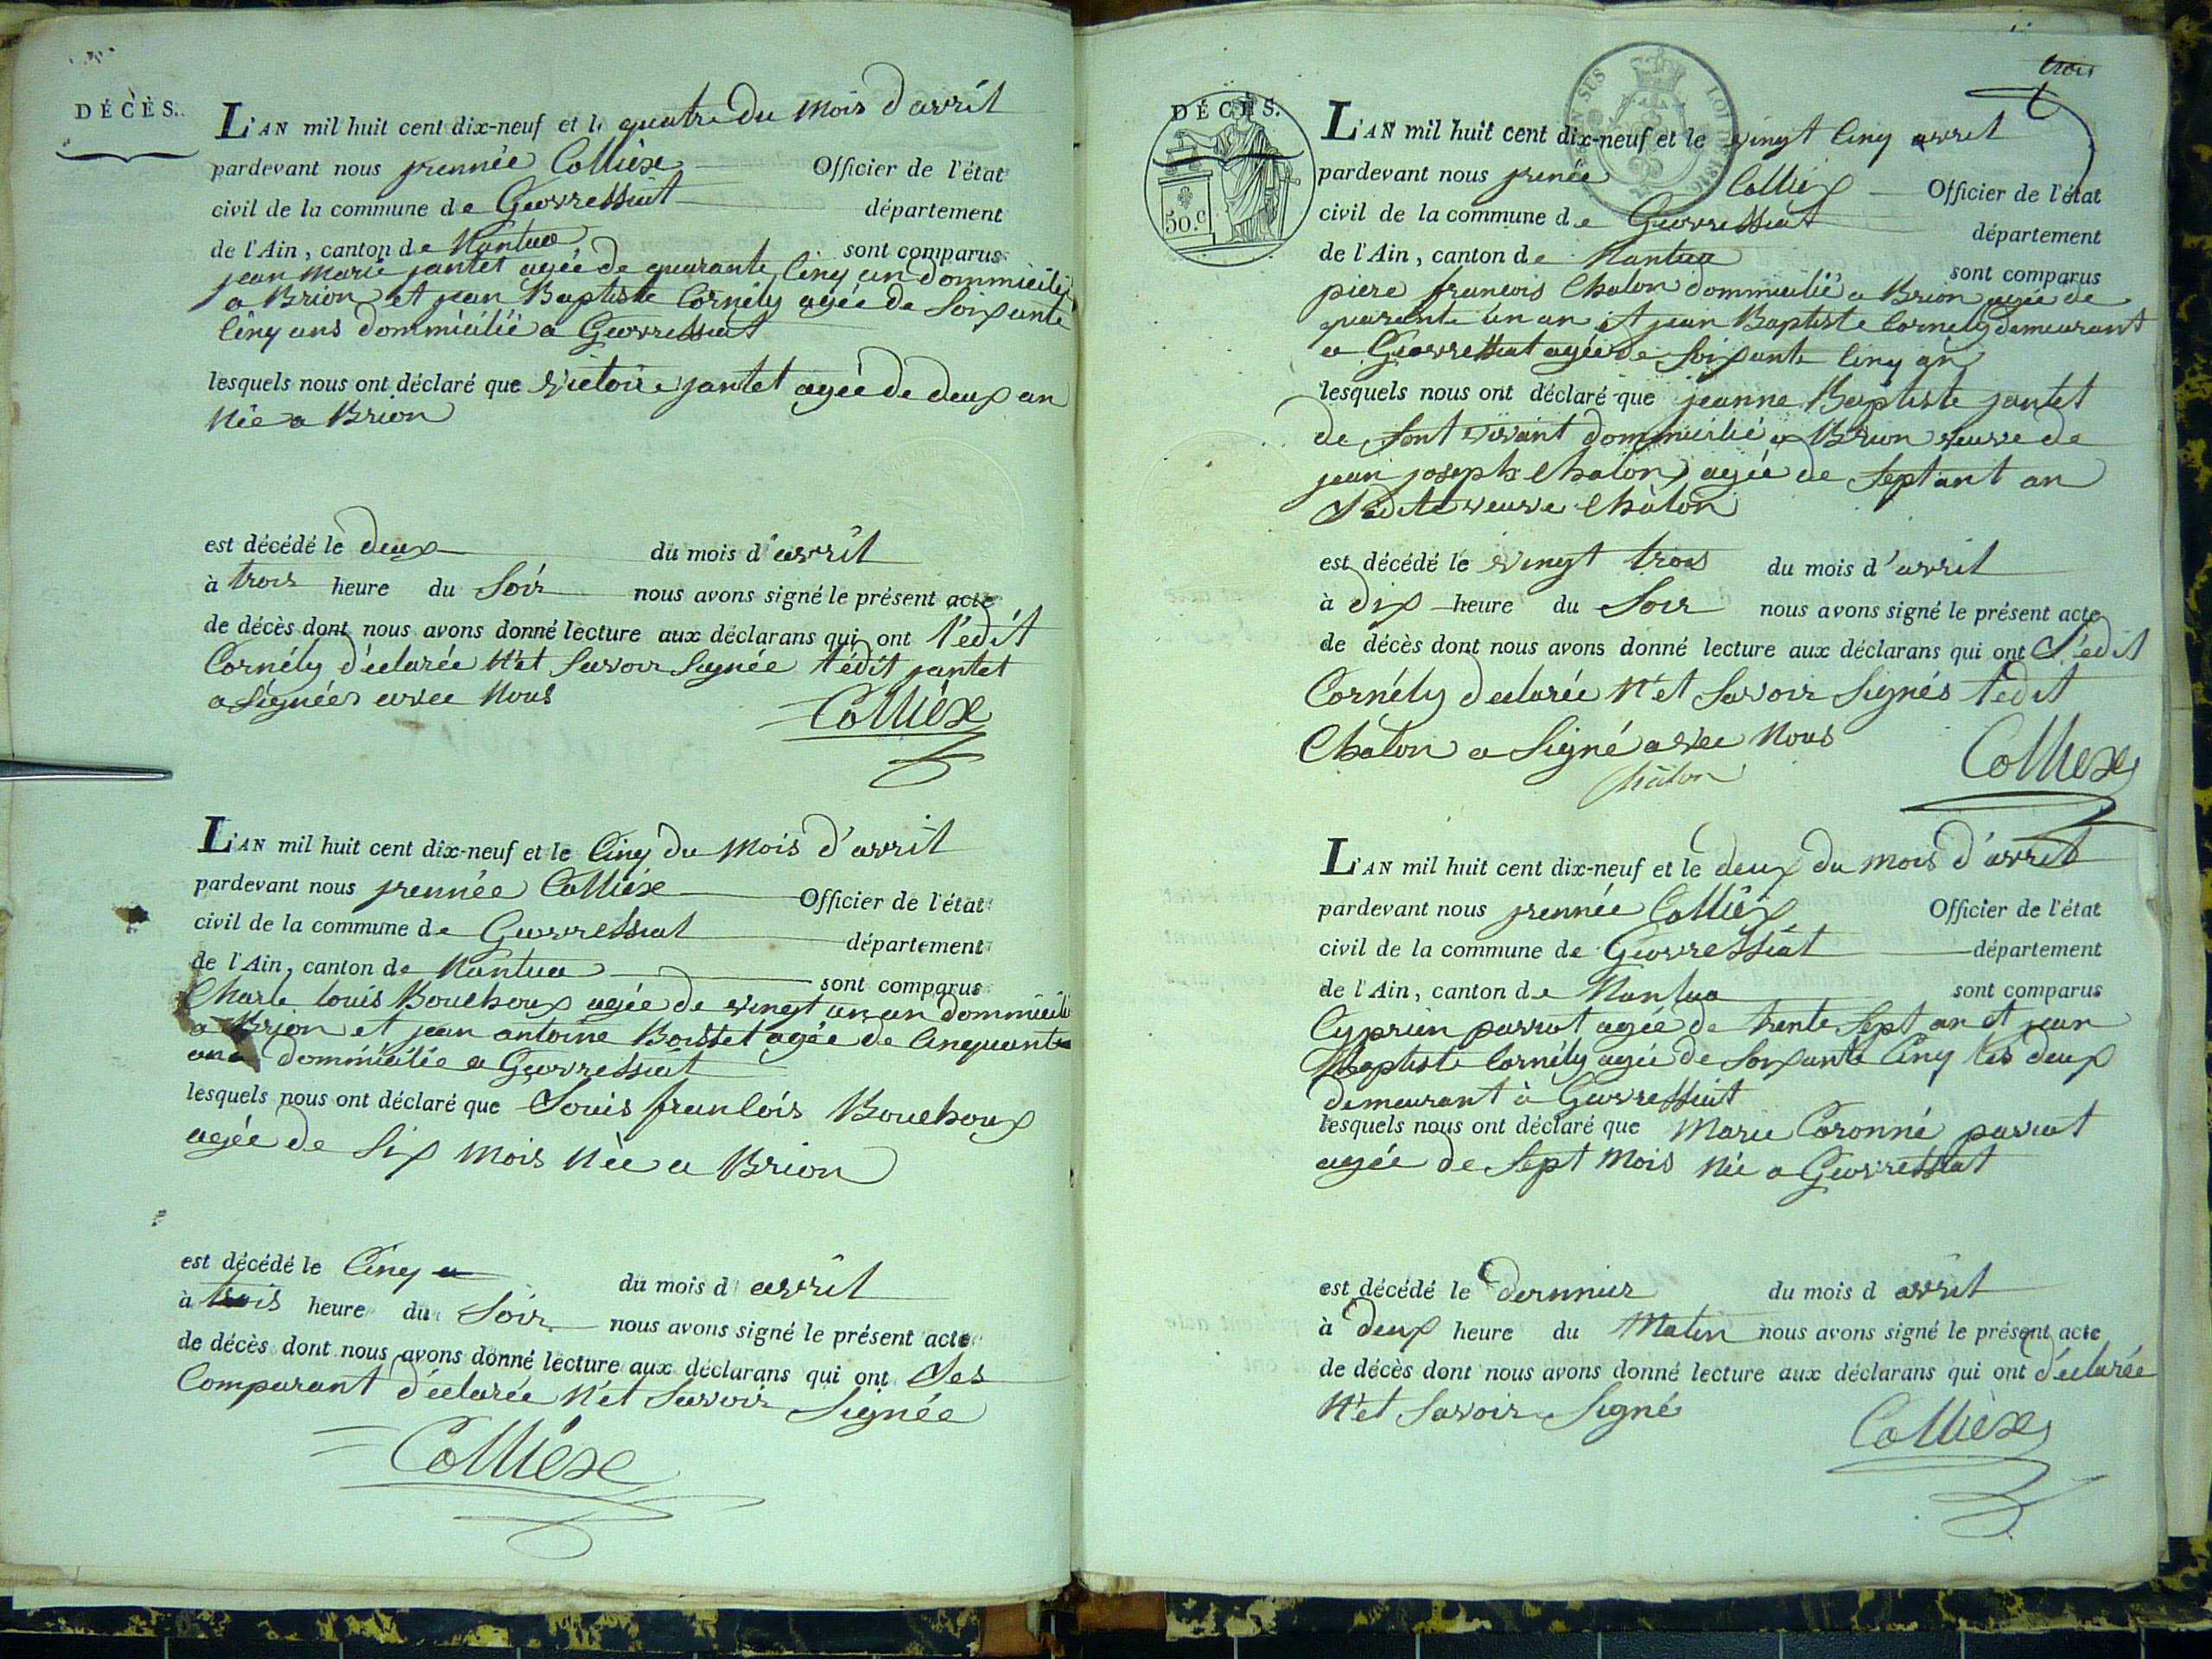 DÉCÈS.
L'AN mil huit cent dix-neuf et le quatre du mois d'avril
pardevant nous prennée Collièx Officier de l'état
civil de la commune de Gevressiat département
de l'Ain, canton de Nantua sont comparus
jean marie jantet agée de quarante cinq an dommicilié
a Brion et jean Baptiste Cornély agée de soixante
cinq ans dommicilié a Gevressiat
lesquels nous ont déclaré que victoire jantet agée de deux an
née a Brion
est décédé le deux du mois d'avril
à trois heure du soir nous avons signé le présent acte
de décès dont nous avons donné lecture aux déclarans qui ont l'édit
Cornély déclarée n'et savoir signée l'édit jantet
a signéer avec nous
Collièx
L'AN mil huit cent dix-neuf et le cinq du mois d'avril
pardevant nous prennée Collièx Officier de l'état
civil de la commune de Gevressiat département
de l'Ain, canton de Nantua sont comparus
Charle louis Bouchoux agée de vingt un an dommicilié
a Brion et jean antoine Boisset agée de cinquante
dommicilié a Gevressiat
lesquels nous ont déclaré que Louis francois Bouchoux
agée de six mois née a Brion
est décédé le cinq du mois d avril
à trois heure du soir nous avons signé le présent acte
de décès dont nous avons donné lecture aux déclarans qui ont Les
Comparant déclarée n'et savoir signée
Collièx
trois
DÉCÈS.
50.c
L'AN mil huit cent dix-neuf et le vingt cinq avril
pardevant nous Collièx Officier de l'état
civil de la commune de Gevressiat département
de l'Ain, canton de Nantua sont comparus
piere francois Chalon dommicilié a Brion agée de
quarante un an et jean Baptiste Cornely demeurant
a Gevressiat agée de soixante cinq an
lesquels nous ont déclaré que jeanne Baptiste jantet
de sont vivant dommicilié a Brion veuve de
jean joseph Chalon agée de septant an
Ladite veuve Châlon
est décédé le vingt trois du mois d'avril
à dix heure du soir nous avons signé le présent acte
de décès dont nous avons donné lecture aux déclarans qui ont L'édit
Cornély declarée n'et savoir signés l'edit
Châlon a signé avec nous
Châlon
Collièx
L'AN mil huit cent dix-neuf et le deux du mois d'avril
pardevant nous prennée Collièx Officier de l'état
civil de la commune de Gevressiat département
de l'Ain, canton de Nantua sont comparus
Cyprien pavrat agée de trente sept an et jean
Baptiste Cornély agée de soixante cinq les deux
demeurant à Gevressiat
lesquels nous ont déclaré que Marie Coronné pavrat
agée de sept mois née a Gevressiat
est décédé le dernnier du mois d avril
à deux heure du Matin nous avons signé le présent acte
de décès dont nous avons donné lecture aux déclarans qui ont déclarée
n'et savoir signé
Collièx